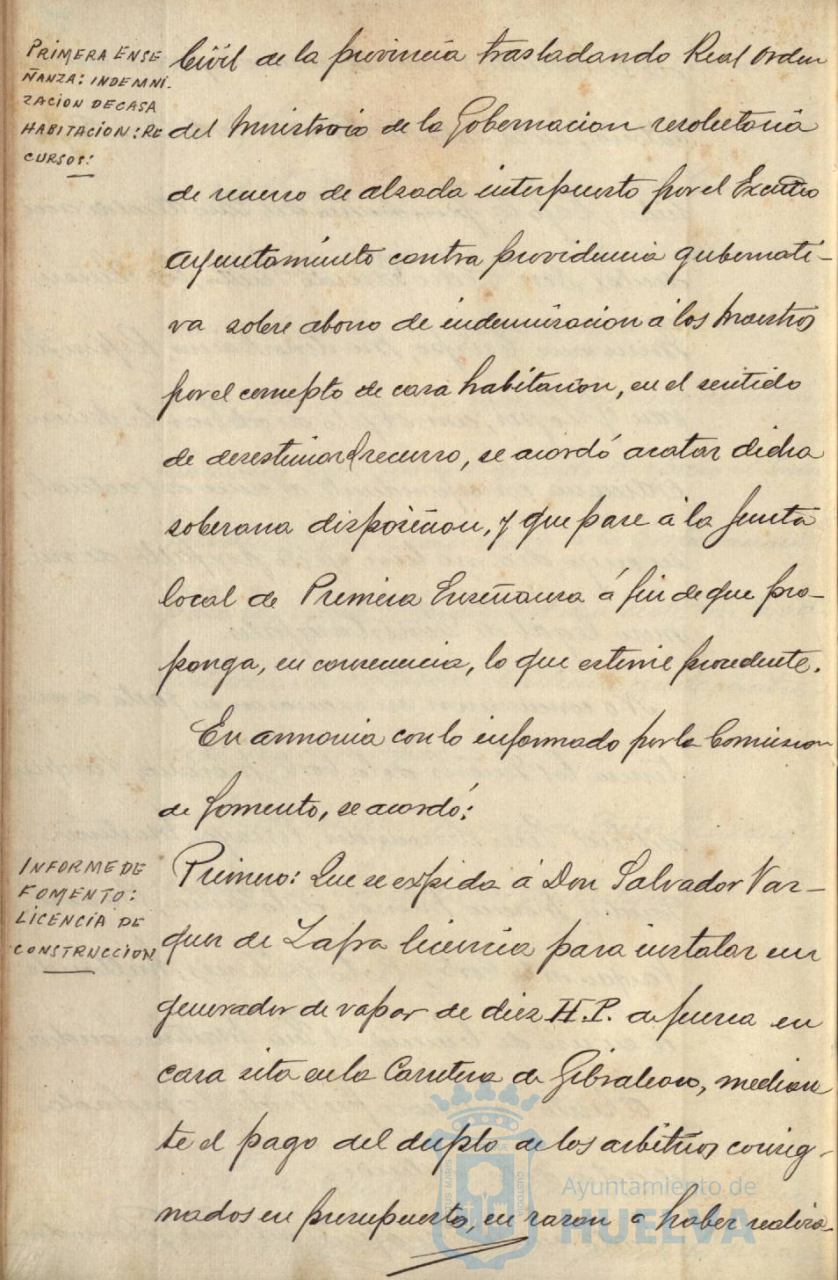 PRIMERA ENSE
ÑANZA: INDEMNI-
ZACION DE CASA
HABITACION: RE
CURSOS:
Civil de la provincia trasladando Real Orden
del Ministerio de la Gobernacion resolutoria
de recurso de alzada interpuesto por el Excmo
Ayuntamiento contra providencia gubernati-
va sobre abono de indemnizacion á los Maestros
por el concepto de casa habitacion, en el sentido
de desestimar el recurso, se acordó acatar dicha
soberana disposicion, y que pase á la Junta
local de Primera Enseñanza á fin de que pro-
ponga, en consecuencia, lo que estime procedente.
En armonia con lo informado por la Comision
de Fomento, se acordó:
INFORME DE
FOMENTO:
LICENCIA DE
CONSTRUCCION
Primero: Que se expida á Don Salvador Vaz-
quez de Zafra licencia para instalar un
generador de vapor de diez H.P. de fuerza en
casa sita en la Carretera de Gibraleon, median
te el pago del duplo de los arbitrios consig-
nados en presupuesto, en razon á haber realiza
Ayuntamiento de
HUELVA